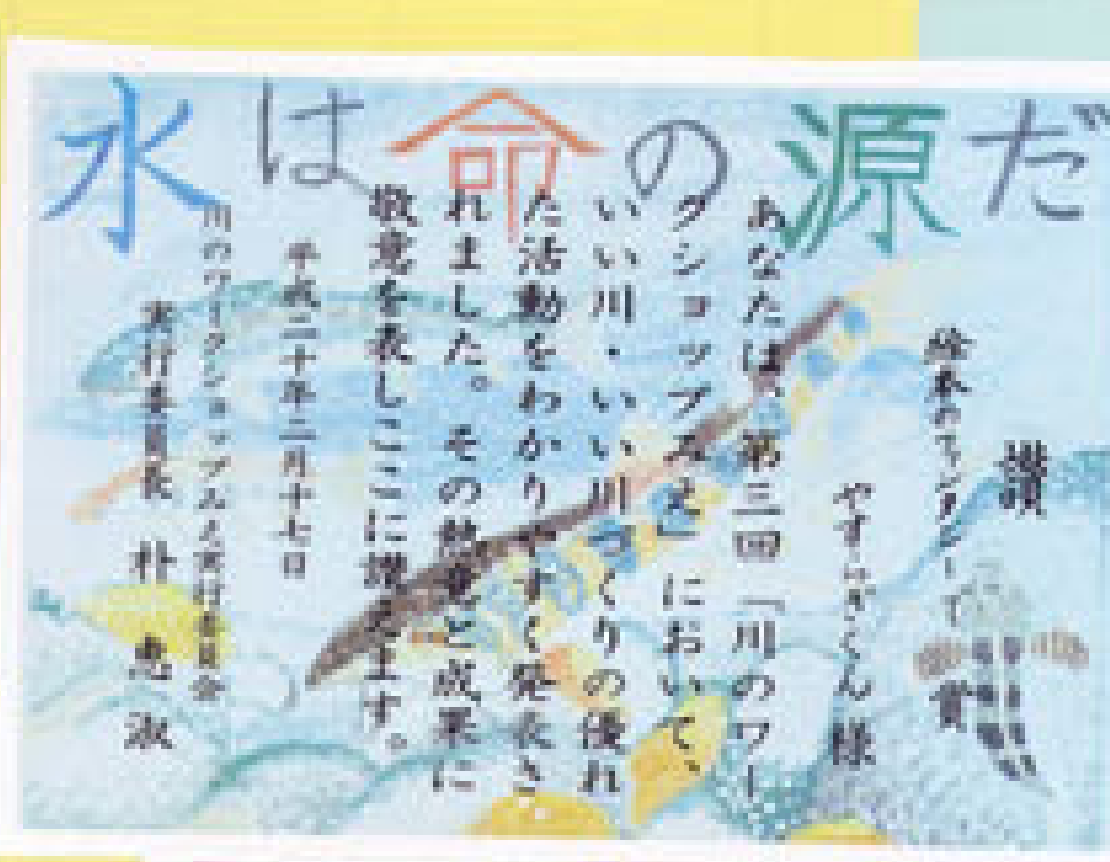 水は命の源だ
讃
絵本のファンタジーで賞
やすにぎくん 様
あなたは、第三回「川のワー
クショップみえ」において、
いい川・いい川づくりの優れ
た活動をわかりやすく発表さ
れました。その熱意と成果に
敬意を表しここに讃えます。
平成二十年二月十七日
川のワークショップみえ実行委員会
実行委員長 朴 恵淑